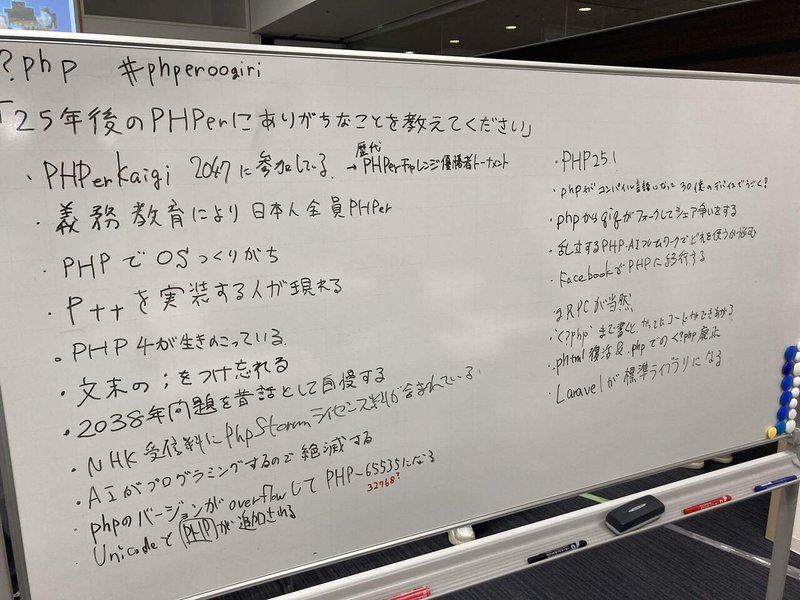 ?php #phperoogiri
「25年後のPHPerにありがちなことを教えてください」
・PHPerKaigi 2047に参加している → 歴代PHPerチャレンジ優勝者トーナメント
・義務教育により日本人全員PHPer
・PHPでOSつくりがち
・P++を実装する人が現れる
・PHP4が生きのこっている
・文末の;をつけ忘れる
・2038年問題を昔話として自慢する
・NHK受信料にPhpStormライセンス料が含まれている
・AIがプログラミングするので絶滅する
・phpのバージョンがoverflowしてPHP-65535になる
32768?
・UnicodeでPHPが追加される
・PHP25.1
・phpがコンパイル言語になって30億のデバイスでうごく?
・phpからgigがフォークしてシェア争いをする
・乱立するPHP-AIフレームワークでどれを使うか悩む
・FacebookがPHPに移行する
・gRPCが当然
・'<?php' まで書くと、かってにコードができあがる
・.phtml復活&.phpでの<?php廃止
・Laravelが標準ライブラリになる